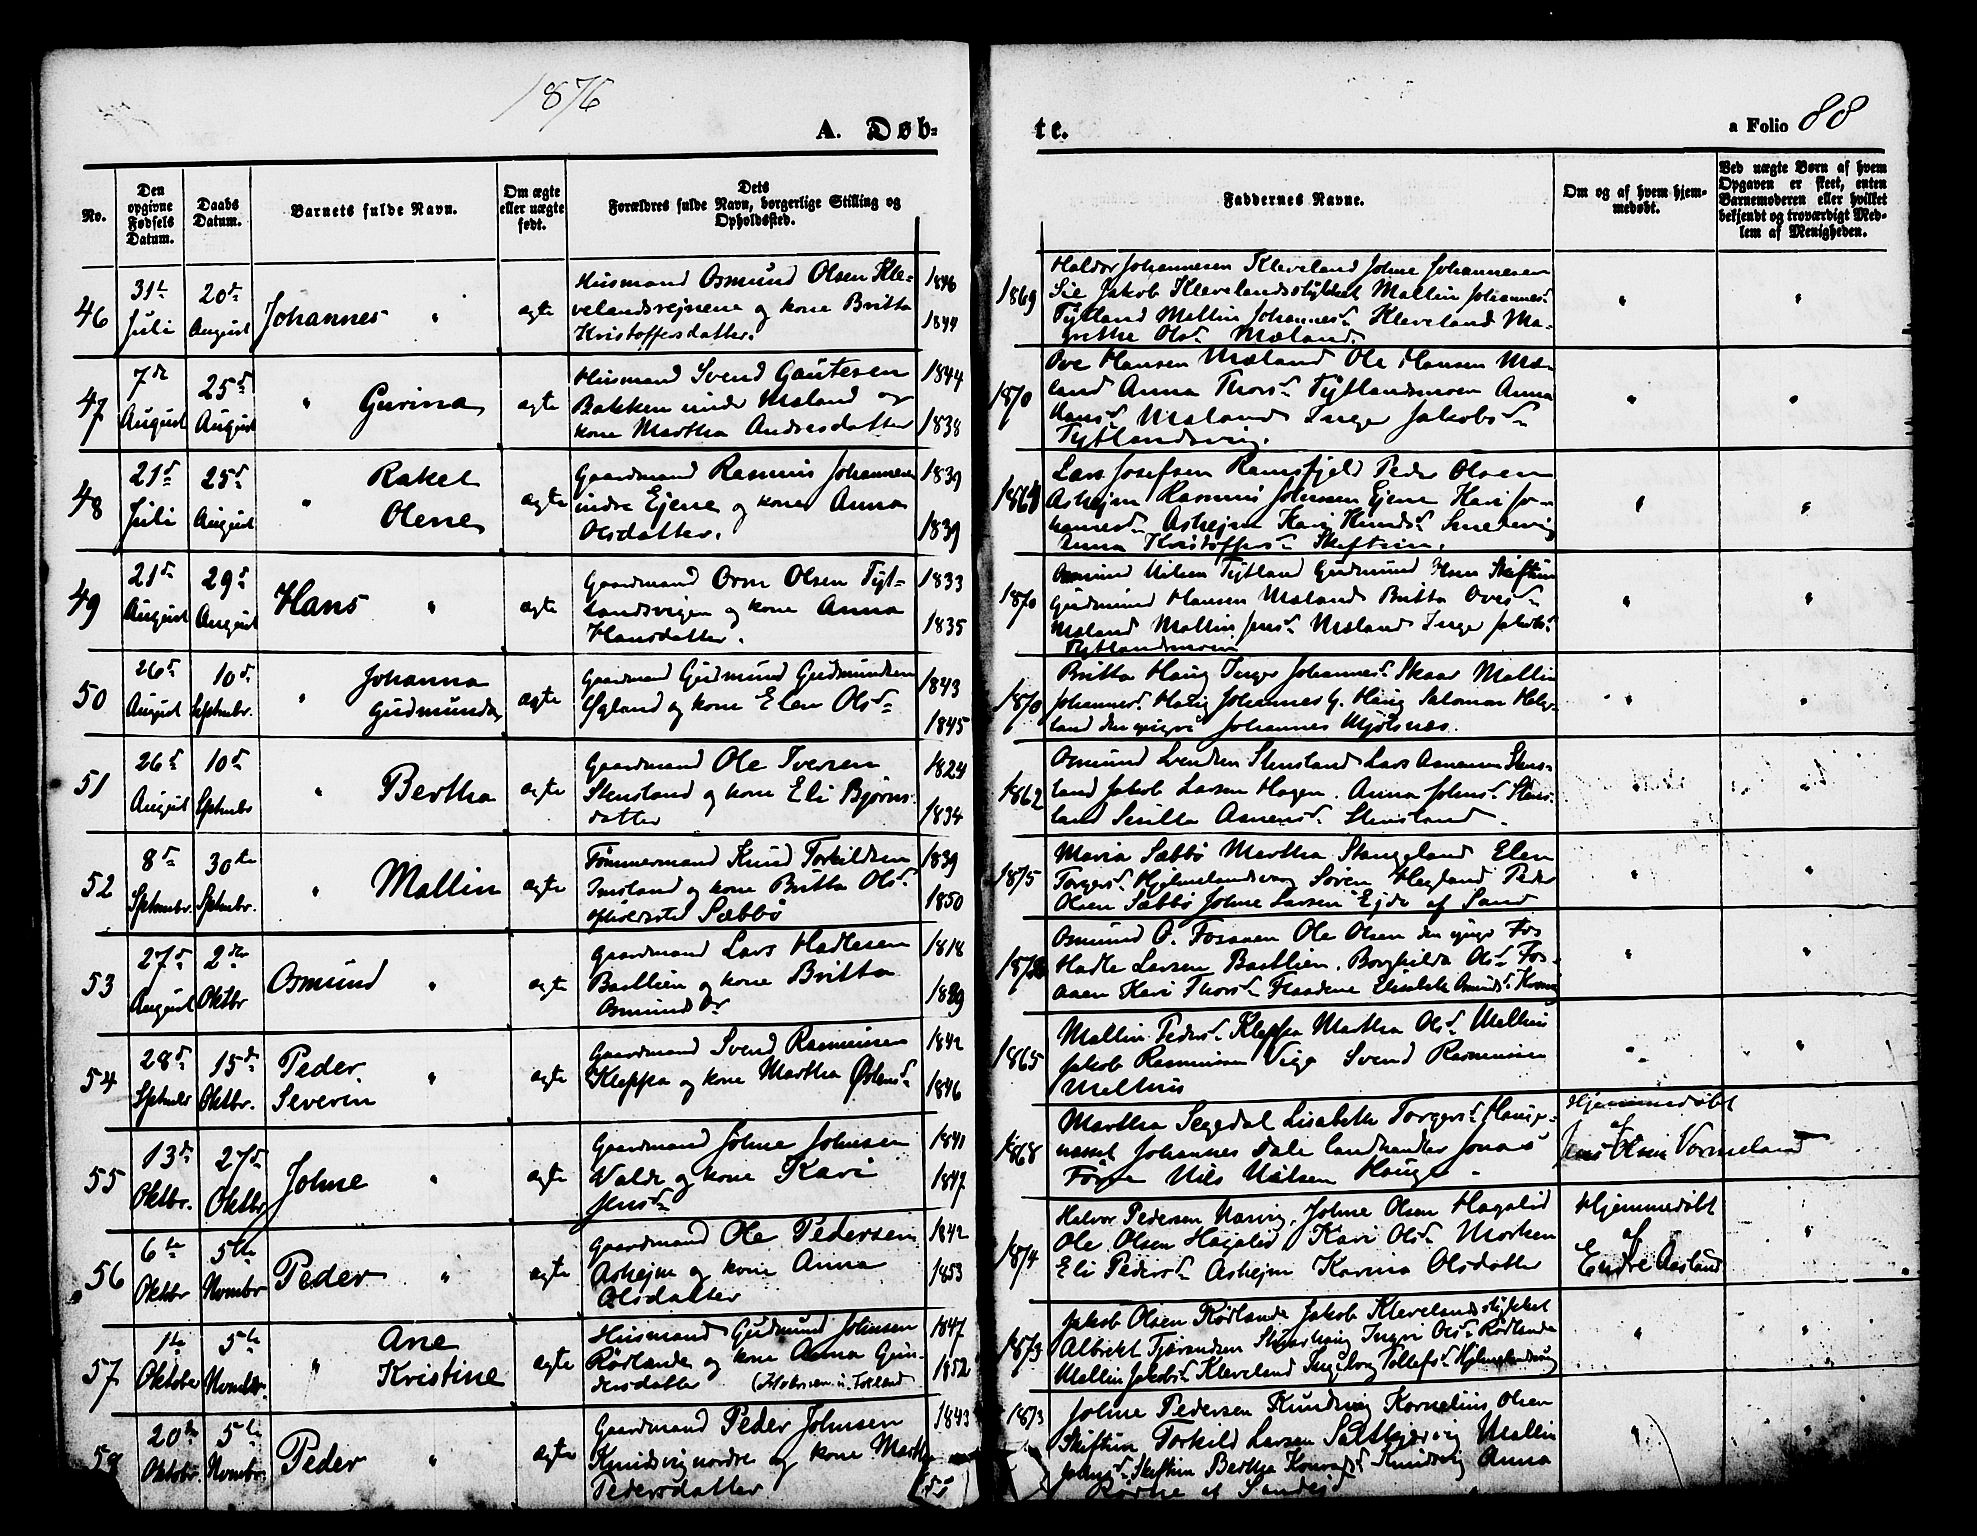 1876
A. Døb-
te.
a Folio 88
No.
Den opgivne Fødsels Datum.
Daabs Datum.
Barnets fulde Navn.
Om ægte eller uægte født.
Dets Forældres fulde Navn, borgerlige Stilling og Opholdssted.
Faddernes Navne.
Om og af hvem hjemmedøbt.
Ved uægte Børn af hvem Opgaven er skeet, enten Barnemoderen eller hvilket bekjendt og troværdigt Medlem af Menigheden.
46 31te Juli 20de August Johannes " ægte
Husmand Osmund Olsen Kle-
velandsvejnene og kone Britta
Kristoffersdatter.
1846
1844
1869
Haldor Johannesen Kleveland Johne Johannesen
Sie Jakob Klevelandsstykket Mallin Johannesd.
Tytland Mallin Johannesd. Kleveland Ma-
grethe Olsd. Mæland.
47 7de August 25de August " Gurina ægte
Husmand Svend Gautesen
Bakken under Mæland og
kone Martha Andreasdatter
1844
1838
1870
Ove Hansen Mæland Ole Hansen Mæ-
land Anna Thorsd. Tytlandsmoen Anna
Hansd. Mæland Inger Jakobsd.
Tytlandsvig.
48 21de Juli 25de August " Rakel Olene ægte
Gaardmand Rasmus Johannesen
indre Ejene og kone Anna
Olsdatter.
1839
1839
Lars Josefsen Ramsfjeld Peder Olsen
Ashejm Rasmus Johnsen Ejene Kari Jo-
hannesd. Ashejm Kari Knudsd.
Anna Kristoffersd. Skiftun.
49 21de August 29de August Hans " ægte
Gaardmand Orm Olsen Tyt-
landsvigen og kone Anna
Hansdatter.
1833
1835
1870
Osmund Nilsen Tytland Gudmund Skiftun
Gudmund Hansen Mæland Britta Ovesd.
Mæland Mallin Jensd. Mæland Inger Jakobsd.
Tytlandsmoen
50 26de August 10de Septembr. " Johanna Gudmunda ægte
Gaardmand Gudmund Gudmundsen
Øgland og kone Elen Olsd.
1843
1845
1870
Britta Haug Inger Johannesd. Skaar Mallin
Johannesd. Haug Johannes G. Haug Salomon Helg-
land den yngre Johannes Mjølsnes.
51 26de August 10de Septembr " Bertha ægte
Gaardmand Ole Iversen
Stensland og kone Eli Bjørns-
datter
1824
1834
1862
Osmund Svendsen Stensland Lars Stens-
land Jakob Larsen Hagen. Anna Johnsd. Stens-
land Asmunsd. Stensland.
52 8de Septembr. 30te Septembr. " Mallin ægte
Tømmermand Knud Torkildsen
Imsland og kone Britta Olsd.
opholdssted Sæbbø
1839
1850
1875
Maria Sæbbø Martha Stangeland Elen
Torgersd. Hjelmelandsvaag Søren Hegland Peder
Olsen Sæbbø Johne Larsen Ejde af Sand
53 27de August 2den Oktbr Osmund " ægte
Gaardmand Lars Hadlesen
Bastlien og kone Britta
Osmundsdr
1818
Osmund O. Fosaaen Ole Olsen den yngre Fos
Hadle Larsen Bastlien. Borghilda Olsd. Fos-
aaen Kari Thorsd. Elisabeth Osmundsd.
54 28de Septembr 15de Oktbr. Peder Severin " ægte
Gaardmand Svend Rasmusen
Kleppa og kone Martha Østensd.
1842
1846
1865
Mallin Pedersd. Kleppa Martha Olsd. Melhus
Jakob Rasmusen Vige Svend Rasmusen
Melhus
55 13de Oktbr. 27de Oktbr Johne " ægte
Gaardmand Johne Johnsen
Walde og kone Kari
Jensd.
1841
1847
1868
Martha Seggedal Lisabeth Torgersd. Hauge-
Johannes Dale landhandler Jonas
Nils Nilsen Hauge.
Hjemmedøbt
af
Jens Olsen Vormeland
56 6te Oktbr 5te Novmbr Peder " ægte
Gaardmand Ole Pedersen
Ashejm og kone Anna
Olsdatter
1842
1853
1874
Halvor Pedersen Johne Olsen Hagalid
Ole Olsen Hagalid Kari Olsd. Morken
Eli Pedersd. Ashejm Karina Olsdatter
Hjemmedøbt
af
Endre Aasland
57 1te Oktober 5te Novmbr. " Ane Kristine ægte
Husmand Gudmund Johnsen
Rødlande og kone Anna Gun-
dersdatter
1847
1852
1873
Jakob Olsen Rødlande Jakob Klevelandsstykket
Albrekt Tjørandsen Inger Olsd. Rødlande
Mallin Jakobsd. Kleveland Ingeborg Tollefsd.
58 20de Oktobr. 5te Novmbr. Peder " ægte
Gaardmand Peder Johnsen
Knudsvig nordre og kone Martha
Pedersdatter
1843
1873
Johne Pedersen Knudsvig Kornelius Olsen
Skiftun Torkild Larsen Mallin
Johnsd. Skiftun Bertha Knudsvig Anna